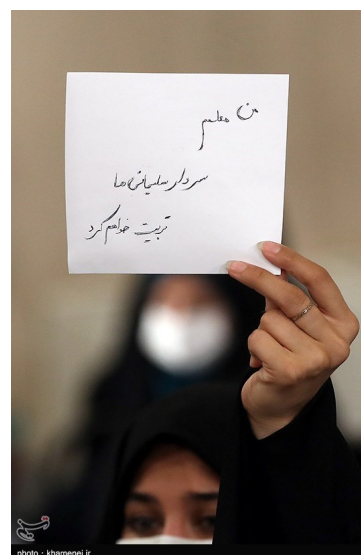 من معلمم
سردار سلیمانی ها
تربیت خواهم کرد
تسنیم
photo : khamenei.ir